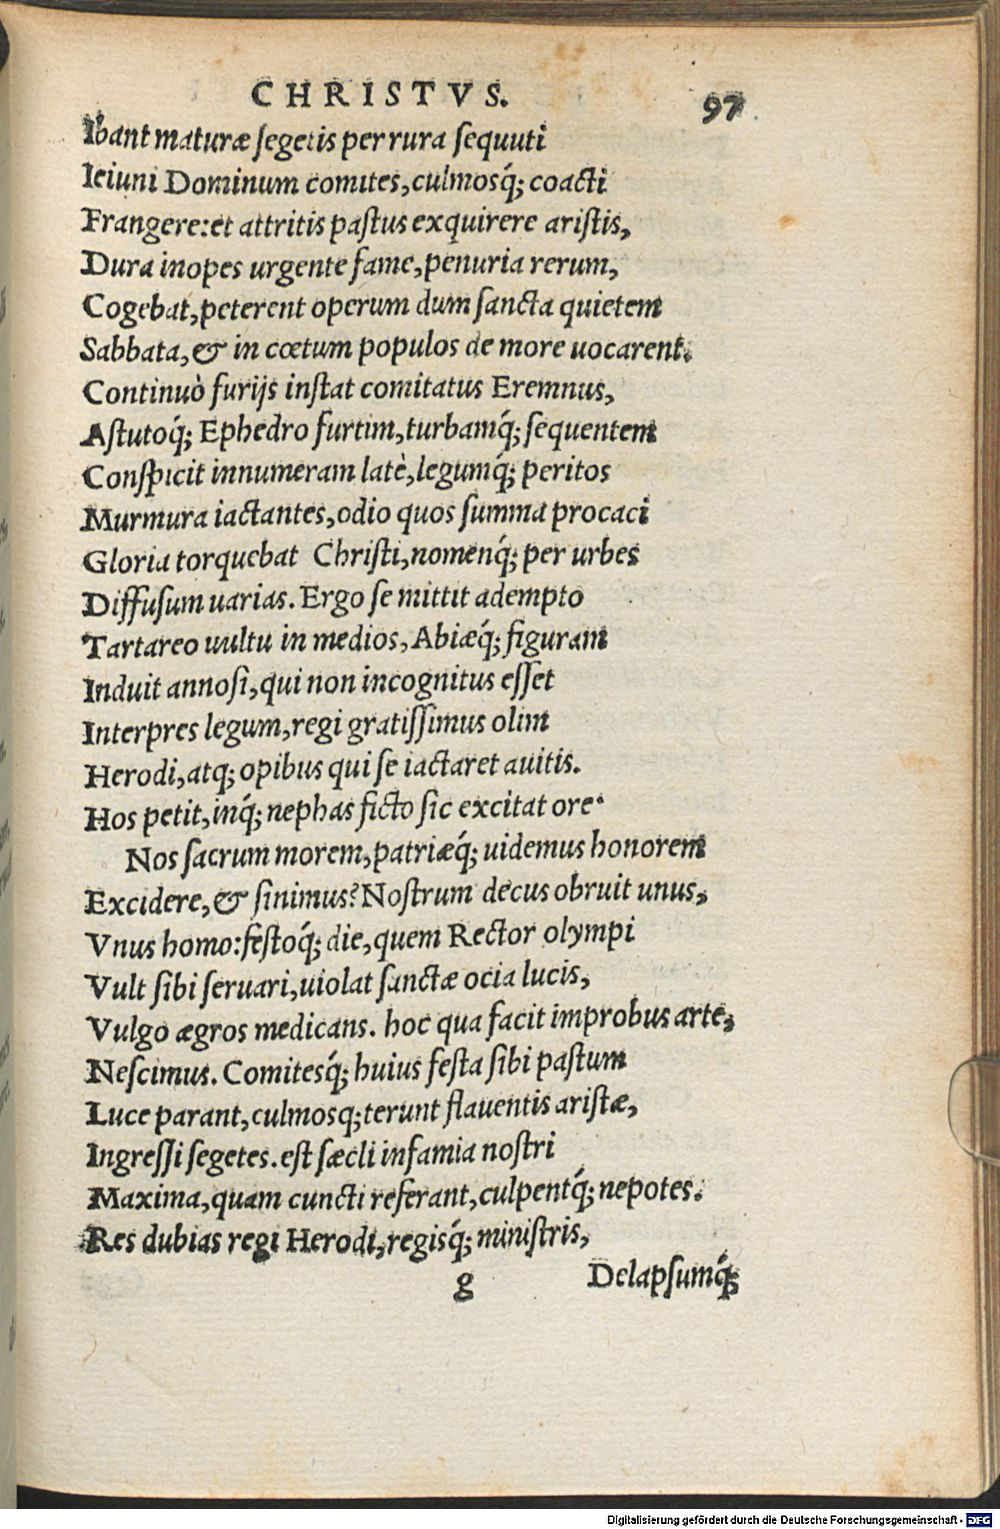 CHRISTVS. 97
Ibant maturæ segetis per rura sequuti
Ieiuni Dominum comites, culmosq́; coacti
Frangere: et attritis pastus exquirere aristis,
Dura inopes urgente fame, penuria rerum,
Cogebat, peterent operum dum sancta quietem
Sabbata, & in cœtum populos de more uocarent.
Continuò furijs instat comitatus Eremnus,
Astutoq́; Ephedro furtim, turbamq́; sequentem
Conspicit innumeram latè, legumq́; peritos
Murmura iactantes, odio quos summa procaci
Gloria torquebat Christi, nomenq́; per urbes
Diffusum uarias. Ergo se mittit adempto
Tartareo uultu in medios, Abiæq́; figuram
Induit annosi, qui non incognitus esset
Interpres legum, regi gratissimus olim
Herodi, atq; opibus qui se iactaret auitis.
Hos petit, inq́; nephas ficto sic excitat ore.
Nos sacrum morem, patriæq́; uidemus honorem
Excidere, & sinimus? Nostrum decus obruit unus,
Vnus homo: festoq́; die, quem Rector olympi
Vult sibi seruari, uiolat sanctæ ocia lucis,
Vulgo ægros medicans. hoc qua facit improbus arte,
Nescimus. Comitesq́; huius festa sibi pastum
Luce parant, culmosq; terunt flauentis aristæ,
Ingressi segetes. est sæcli infamia nostri
Maxima, quam cuncti referant, culpentq́; nepotes.
Res dubias regi Herodi, regisq́; ministris,
g Delapsumq́;
Digitalisierung gefördert durch die Deutsche Forschungsgemeinschaft - DFG